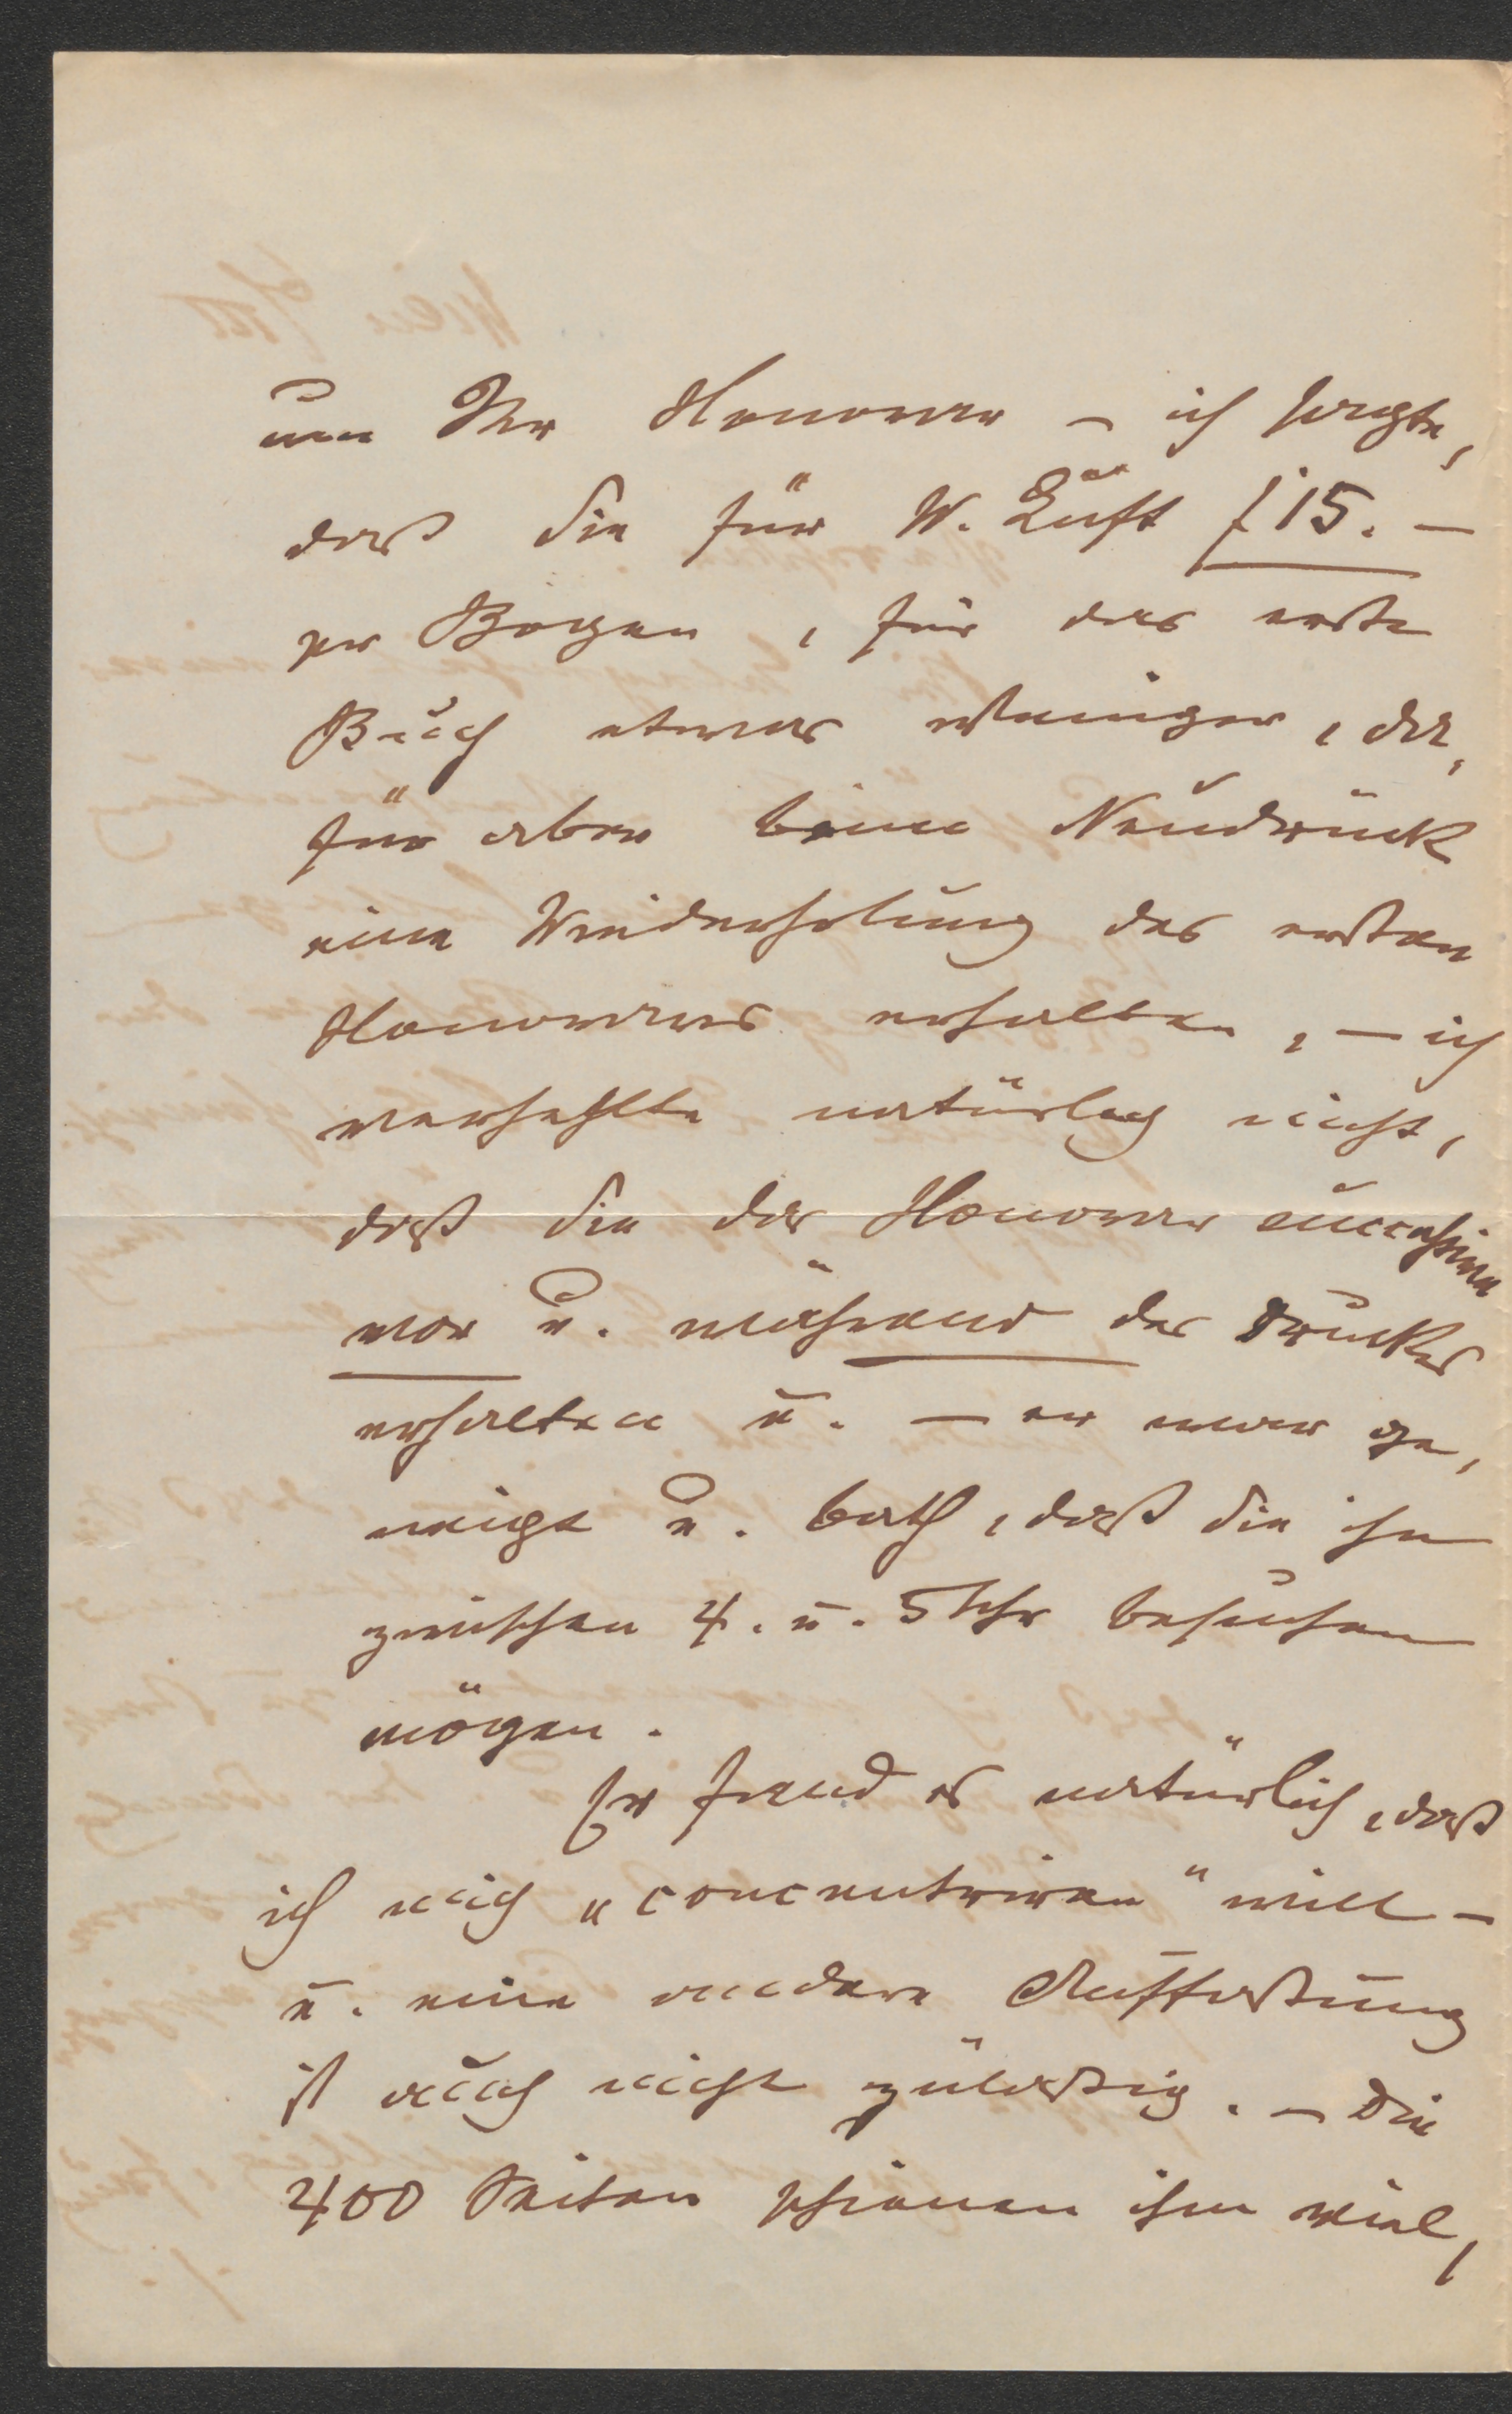 um Ihr Honorar – ich sagte,
daß Sie für W. Luft f 15. –
pr Bogen, für das erste
Buch etwas weniger, da,
für aber beim Neudruck
eine Wiederholung des ersten
Honorares erhalten, – ich
verhehlte natürlich nicht,
daß Sie das Honorar successive
vor u. während des Druckes
erhalten u. – er war ge,
neigt u. bath, daß Sie ihn
zwischen 4. u. 5 Uhr besuchen
mögen.
Er fand es natürlich, daß
ich mich „concentriren" will –
u. eine andere Auffassung
ist auch nicht zuläßig. – Die
400 Seiten schienen ihm viel,